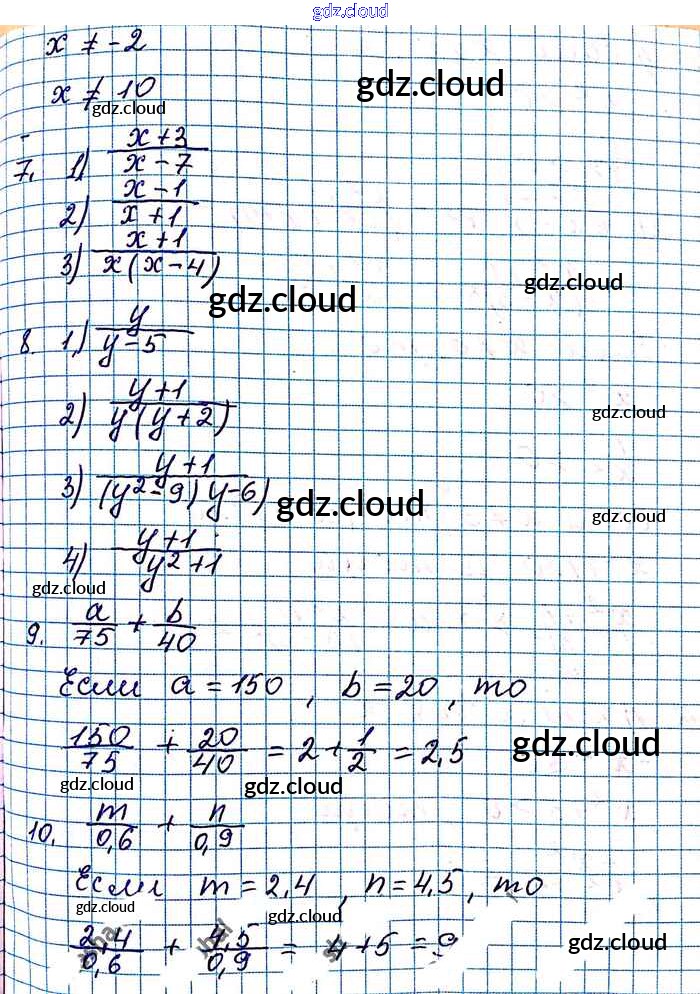 gdz.cloud
x ≠ -2
gdz.cloud
x ≠ 10
gdz.cloud
7. 1) (x+3)/(x-7)
2) (x-1)/(x+1)
3) (x+1)/(x(x-4))
gdz.cloud
gdz.cloud
8. 1) y/(y-5)
2) (y+1)/(y(y+2))
gdz.cloud
3) (y+1)/((y²-9)y-6)
gdz.cloud
gdz.cloud
4) (y+1)/(y²+1)
gdz.cloud
9. a/75 + b/40
Если a = 150, b = 20, то
150/75 + 20/40 = 2 + 1/2 = 2,5
gdz.cloud
gdz.cloud
gdz.cloud
10. m/0,6 + n/0,9
Если m = 2,4, n = 4,5, то
gdz.cloud
gdz.cloud
2,4/0,6 + 4,5/0,9 = 4 + 5 = 9
gdz.cloud
gdz.cloud